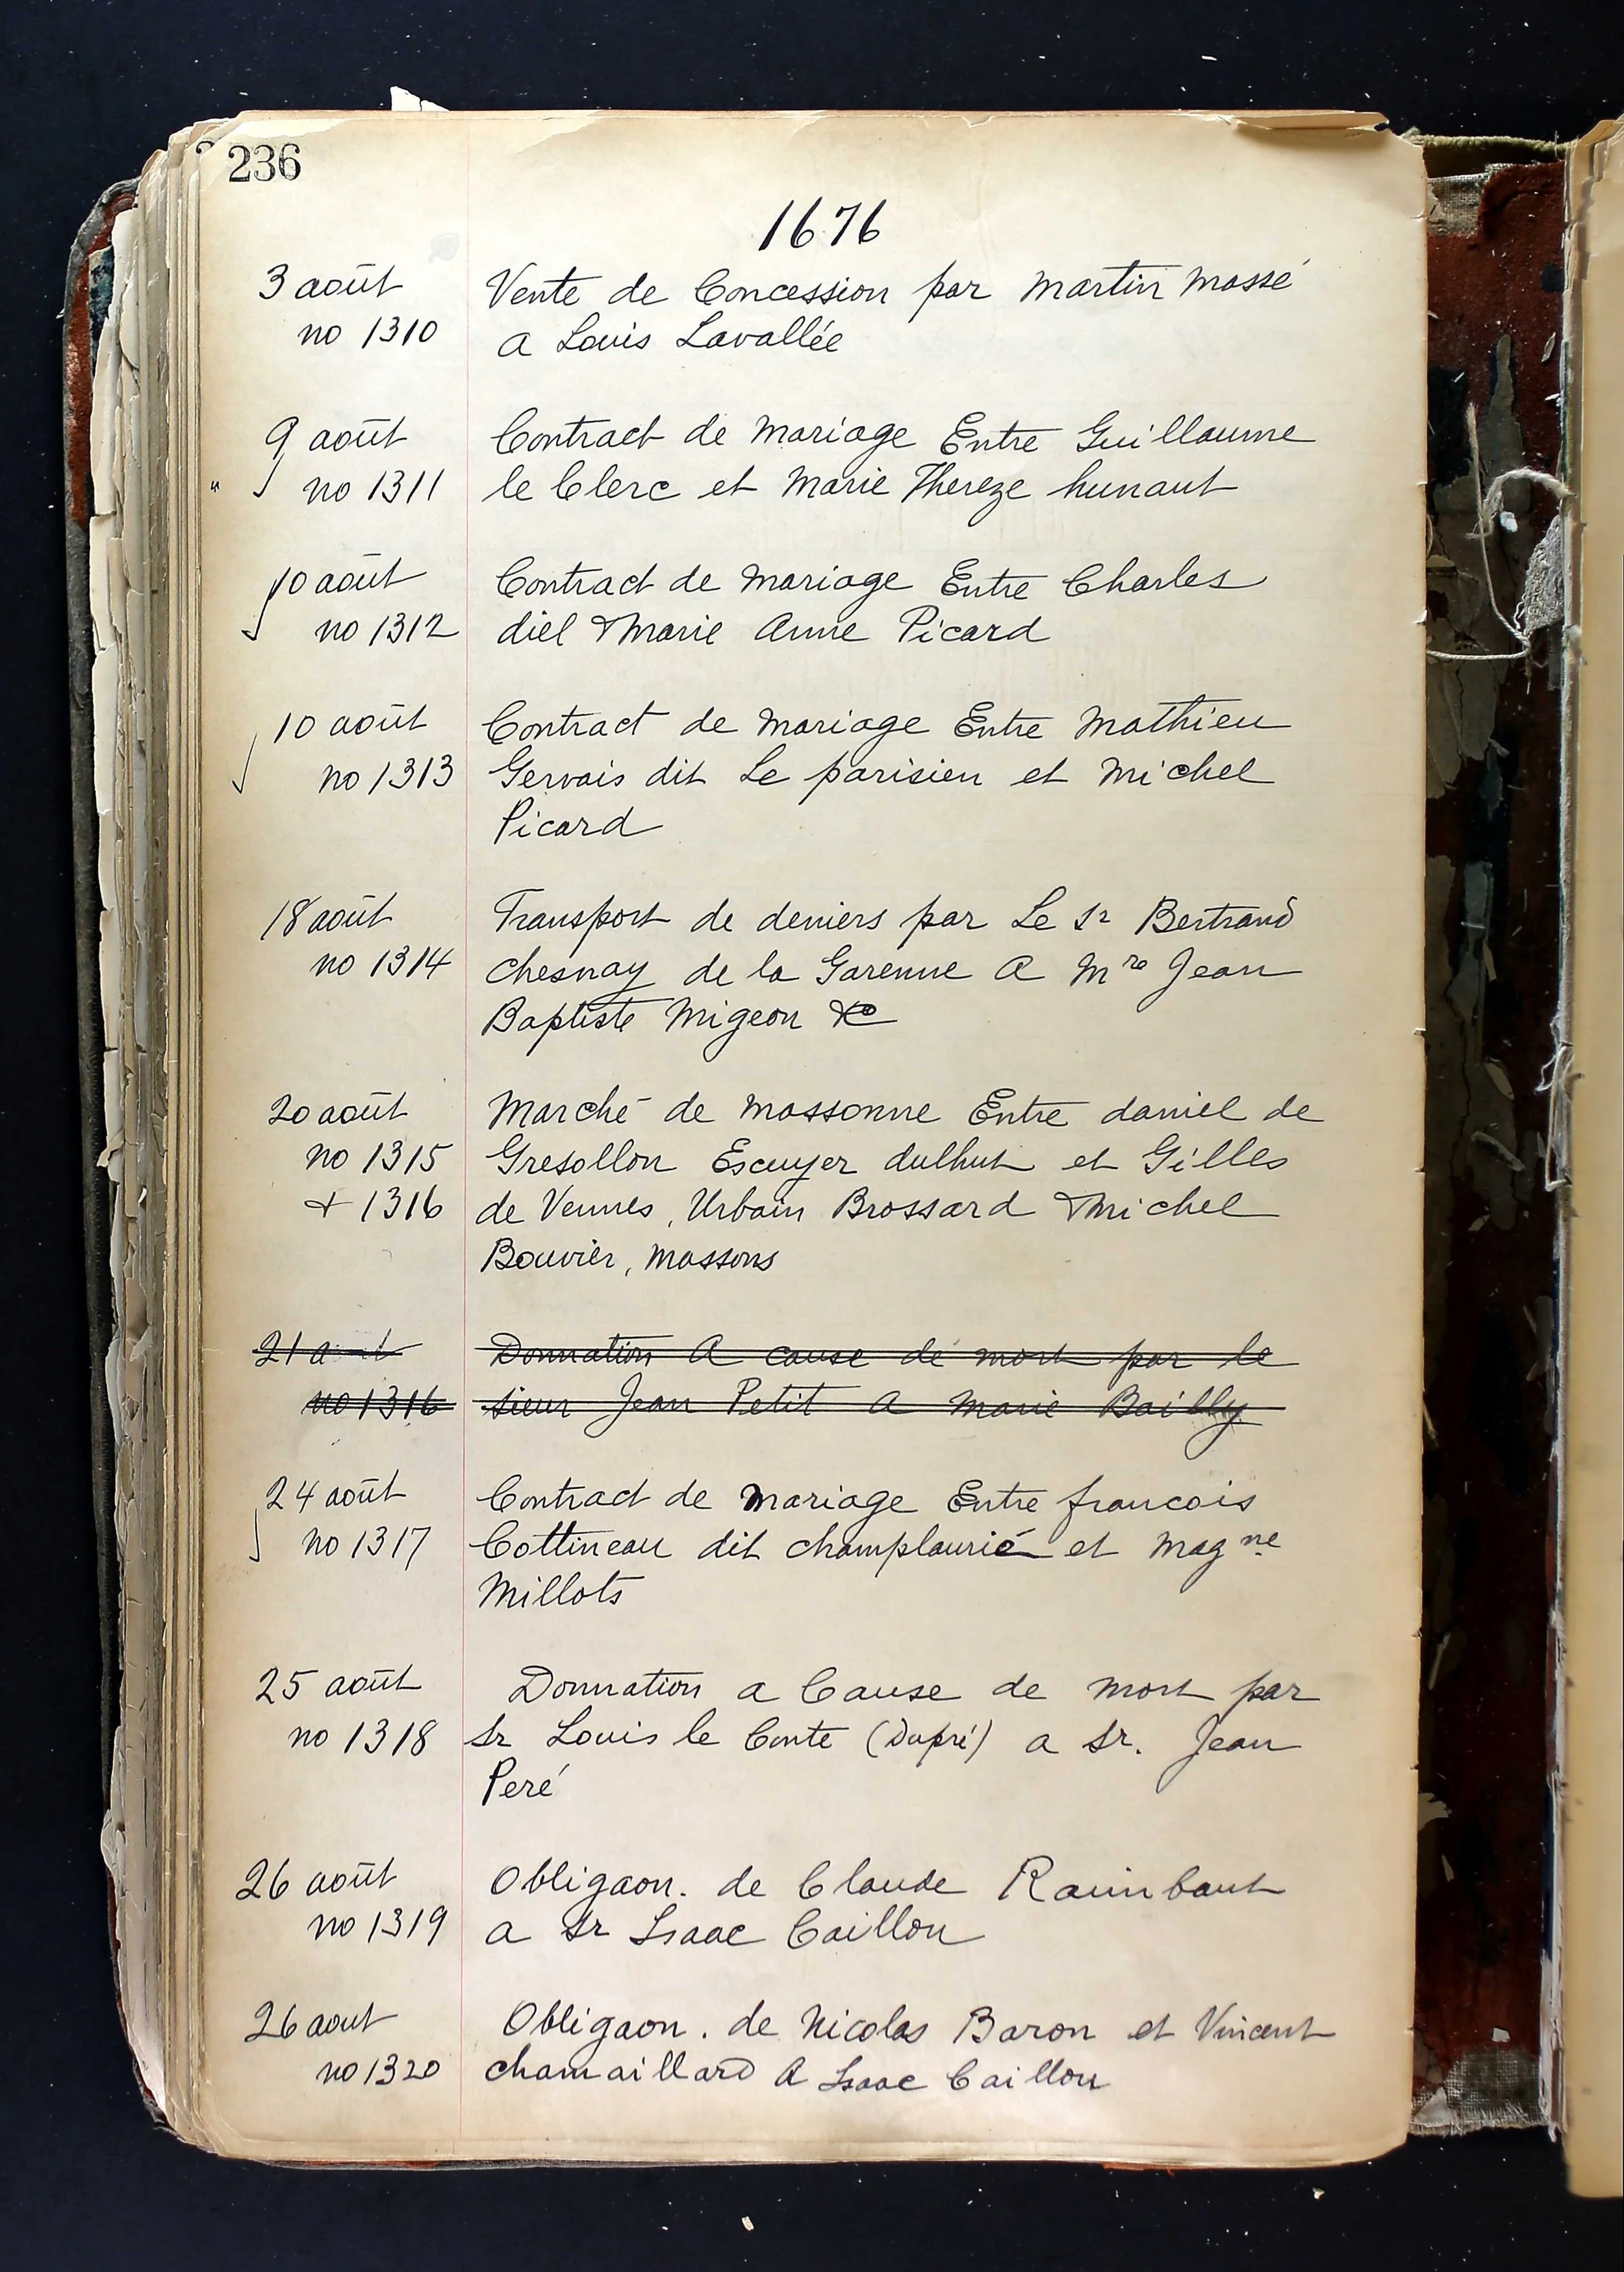 236
1676
3 août Vente de Concession par Martin Massé
no 1310 a Louis Lavallée
9 août Contract de Mariage Entre Guillaume
" no 1311 le Clerc et Marie Thereze hunaut
10 août Contract de Mariage Entre Charles
no 1312 diel & Marie Anne Picard
10 août Contract de Mariage Entre Mathieu
no 1313 Gervais dit Le parisien et Michel
Picard
18 août Transport de deniers par Le Sr Bertrand
no 1314 chesnay de la Garenne A Mre Jean
Baptiste Migeon &c
20 août Marché de massonne Entre daniel de
no 1315 Gresollon Escuyer dulhut et Gilles
+ 1316 de Vennes, Urbain Brossard & Michel
Bouvier, massons
21 août Donnation A cause de mort par le
no 1316 sieur Jean Petit A Marie Bailly
24 août Contract de Mariage Entre francois
no 1317 Cottineau dit champlaurié et Magne
Millots
25 août Donnation a Cause de Mort par
no 1318 Sr Louis le Conte (Dupré) a Sr. Jean
Peré
26 août Obligaon. de Claude Raimbaut
no 1319 a Sr Isaac Caillou
26 aout Obligaon. de Nicolas Baron et Vincent
no 1320 chamaillard A Isaac Caillou